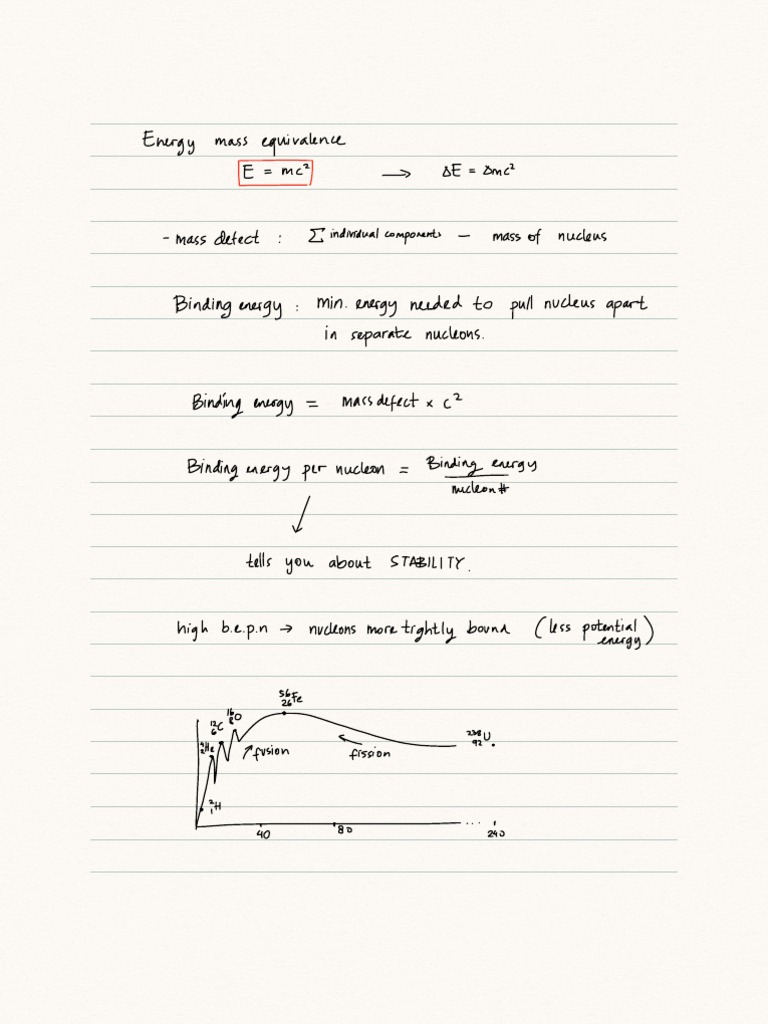 Energy mass equivalence
E = mc² → ΔE = Δmc²
- mass defect : Σ individual components − mass of nucleus
Binding energy : min. energy needed to pull nucleus apart
in separate nucleons.
Binding energy = mass defect × c²
Binding energy per nucleon = Binding energy
nucleon #
tells you about STABILITY.
high b.e.p.n → nucleons more tightly bound (less potential
energy)
⁵⁶₂₆Fe
¹⁶₈O
¹²₆C
⁴₂He
²₁H
fusion
fission
²³⁸₉₂U
40 80 ... 240